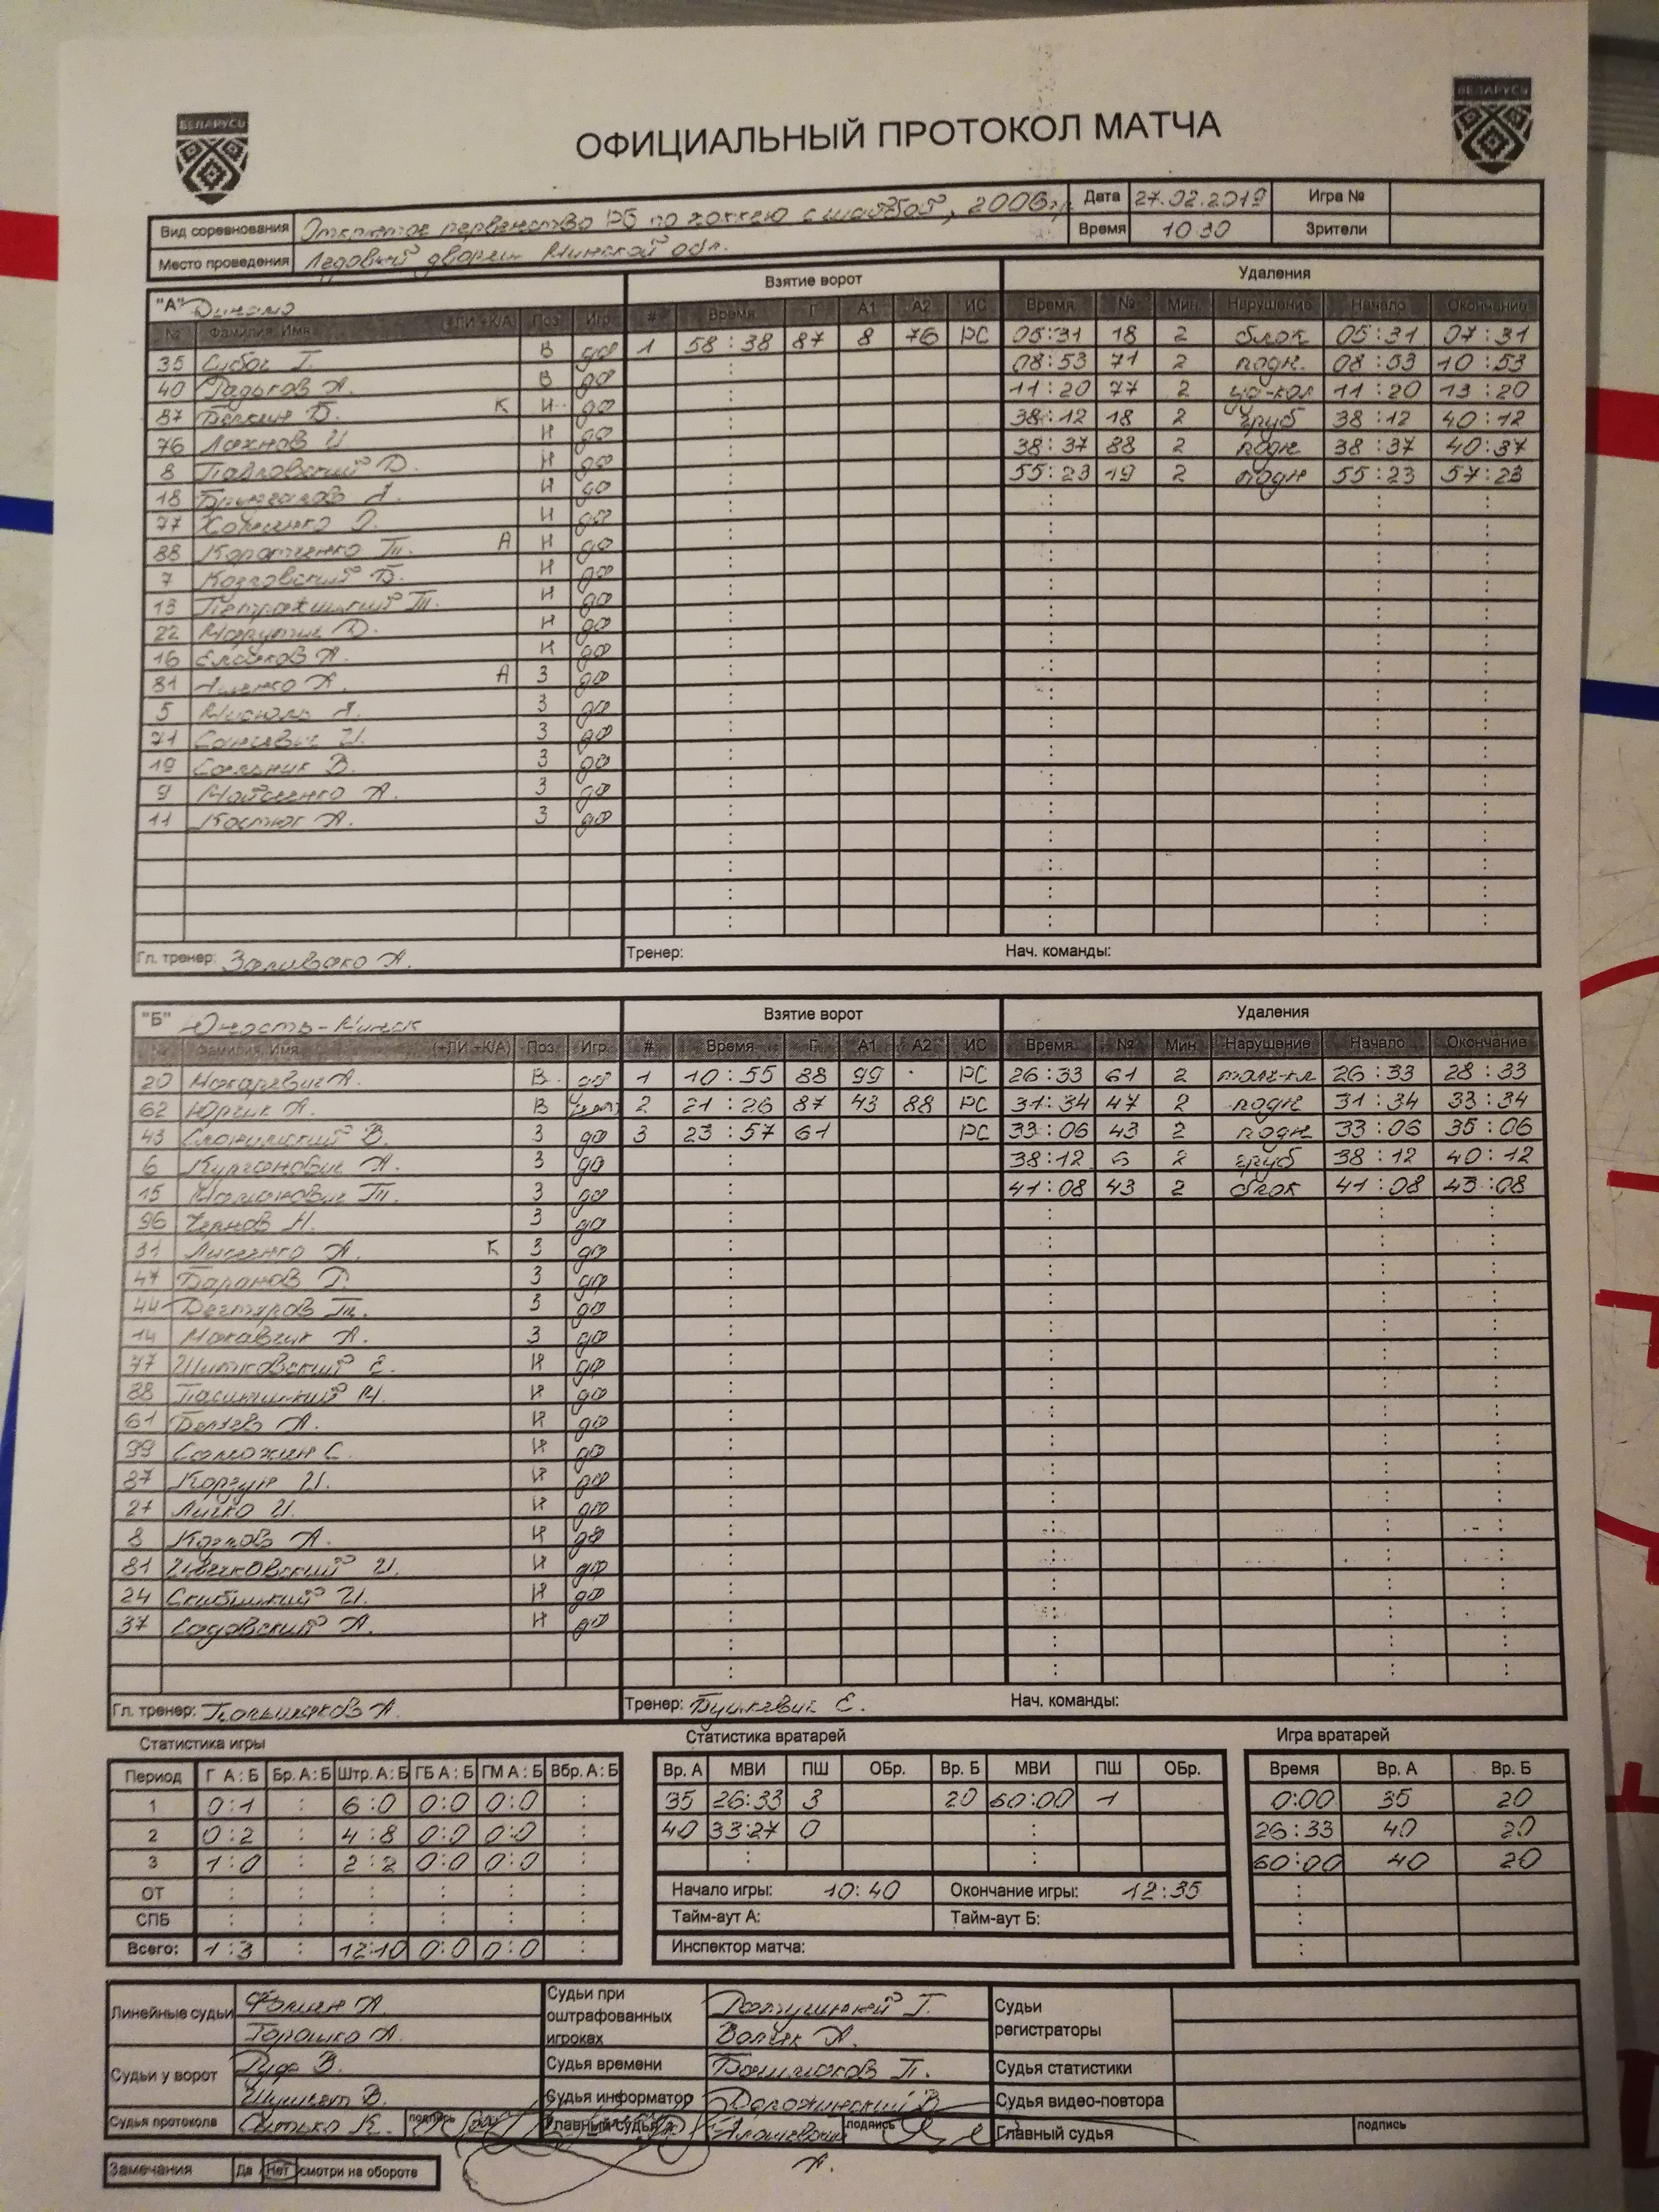 БЕЛАРУСЬ БЕЛАРУСЬ
ОФИЦИАЛЬНЫЙ ПРОТОКОЛ МАТЧА
Вид соревнования Открытое первенство РБ по хоккею с шайбой, 2006 г.р. Дата 27.02.2019 Игра №
Место проведения Ледовый дворец Минской обл. Время 10 30 Зрители
"А" Динамо Взятие ворот Удаления
№ Фамилия, Имя (+ЛИ +К/А) Поз Игр # Время Г А1 А2 ИС Время № Мин. Нарушение Начало Окончание
35 Субоч Г. В да 1 58:38 87 8 76 РС 05:31 18 2 блок 05:31 07:31
40 А. В да 08:53 71 2 подн. 08:53 10:53
87 Б. К Н да 11:20 77 2 11:20 13:20
76 Лахнов И Н да 38:12 18 2 груб 38:12 40:12
8 Павловский Д. Н да 38:37 88 2 подн 38:37 40:37
18 Н да 55:23 19 2 подн 55:23 57:23
77 Н да
88 Коротченко Т. А Н да
7 Козловский Б. Н да
13 Т. Н да
22 Марутич Д. Н да
16 А. Н да
81 А. А З да
5 З да
71 И. З да
19 В. З да
9 Мойсеенко А. З да
11 Костюк А. З да
Гл. тренер: Заливако А. Тренер: Нач. команды:
"Б" Юность-Минск Взятие ворот Удаления
Фамилия, Имя (+ЛИ +К/А) Поз. Игр. # Время Г А1 А2 ИС Время № Мин Нарушение Начало Окончание
20 Макаревич А. В да 1 10:55 88 99 РС 26:33 61 2 толч-кл 26:33 28:33
62 Юрчик А. В нет 2 21:26 87 43 88 РС 31:34 47 2 подн 31:34 33:34
43 Слонимский В. З да 3 23:57 61 РС 33:06 43 2 подн 33:06 35:06
6 Курганович А. З да 38:12 6 2 груб 38:12 40:12
15 Т. З да 41:08 43 2 блок 41:08 43:08
96 Чернов Н. З да
31 Лисненко А. К З да
47 Баранов Г. З да
44 Дегтяров Т. З да
14 Макавчик А. З да
77 Шитковский Е. Н да
88 Н. Н да
61 Беляев А. Н да
99 Самохин С. Н да
87 Коргун И. Н да
27 Личко И. Н да
8 Козлов А. Н да
81 И. Н да
24 Скибицкий И. Н да
37 Садовский А. Н да
Гл. тренер: А. Тренер: Бушкевич Е. Нач. команды:
Статистика игры Статистика вратарей Игра вратарей
Период Г А : Б Бр. А : Б Штр. А : Б ГБ А : Б ГМ А : Б Вбр. А : Б Вр. А МВИ ПШ ОБр. Вр. Б МВИ ПШ ОБр. Время Вр. А Вр. Б
1 0:1 : 6:0 0:0 0:0 : 35 26:33 3 20 60:00 1 0:00 35 20
2 0:2 : 4:8 0:0 0:0 : 40 33:27 0 : 26:33 40 20
3 1:0 : 2:2 0:0 0:0 : : : 60:00 40 20
ОТ : : : : : : Начало игры: 10:40 Окончание игры: 12:35 :
СПБ : : : : : : Тайм-аут А: Тайм-аут Б: :
Всего: 1:3 : 12:10 0:0 0:0 : Инспектор матча: :
Линейные судьи Фомин А. Судьи при оштрафованных игроках Г. Судьи регистраторы
Горошко А. Волчек А.
Судьи у ворот Руф В. Судья времени Башмаков П. Судья статистики
В. Судья информатор Дорожинский В. Судья видео-повтора
Судья протокола Сытько К. подпись Главный судья А. подпись Главный судья подпись
Замечания Да Нет смотри на обороте